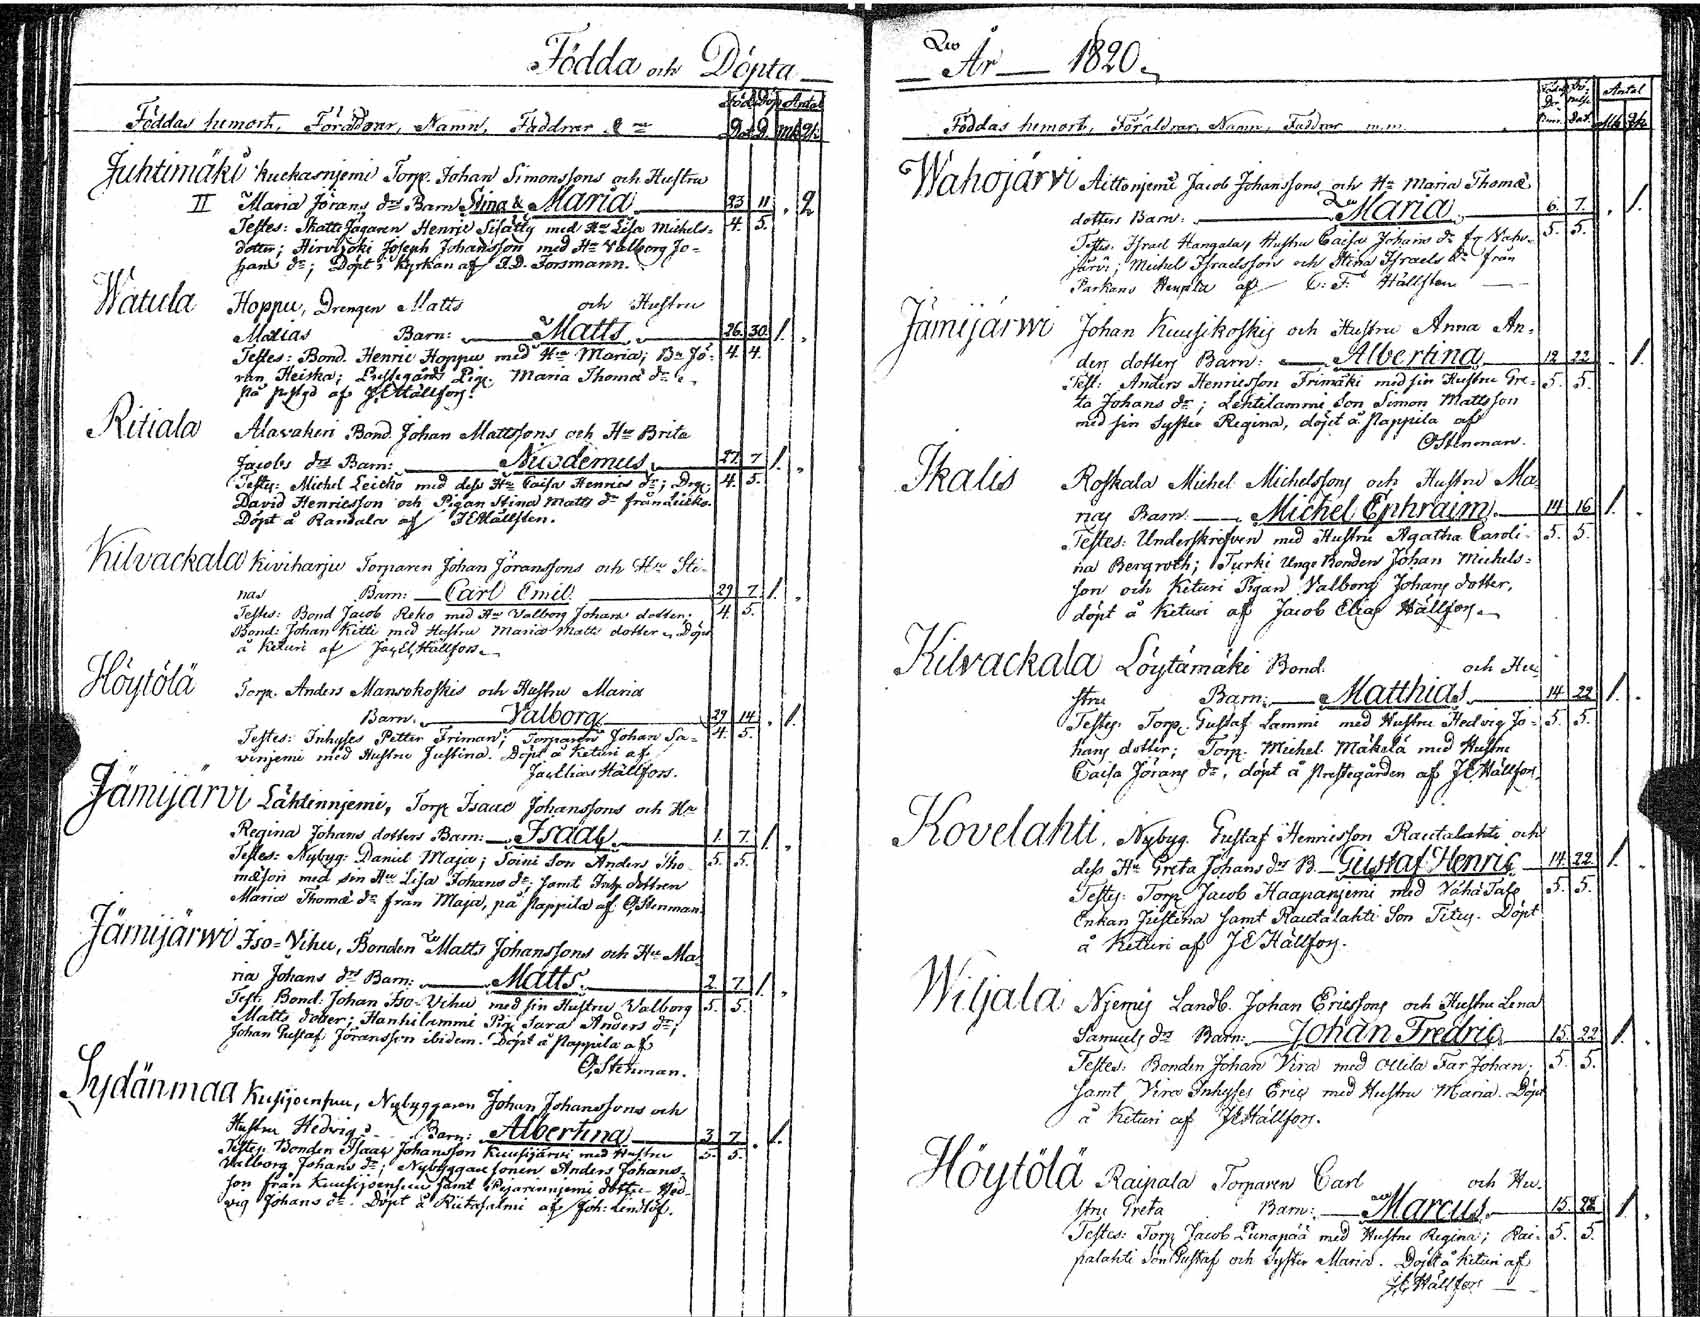 Födda och Döpta
Föddas hemort, Föräldrar, Namn, Faddrar
Född Döp Antal
Dat D. Mk Qk
Juhtimäki Kuckasnjemi Torp. Johan Simonssons och Hustru
II Maria Jörans drs Barn Stina & Maria 23 11 . 2
Testes: Skatte Jägaren Henric Sisätty med Hru Lisa Michels= 4. 5.
dotter; Hirvijoki Joseph Johansson med Hru Valborg Jo=
hans dr; Döpt i kyrkan af Forsmann.
Watula Hoppu, Drengen Matts och Hustru
Marias Barn: Matts 26. 30. 1. .
Testes: Bond. Henric Hoppu med Hru Maria; Bn Jö= 4. 4.
ran Heiska; Prestegårds Pig. Maria Thomæ dr
på prstgd af J.E. Hällfors.
Ritiala Alavaheri Bond. Johan Mattssons och Hru Brita
Jacobs drs Barn: Nicodemus 27. 7 1. .
Testes: Michel Leicko med dess Hru Caisa Henrics dr; Drg. 4. 5.
David Henricsson och Pigan Stina Matts dr från Leicko.
Döpt å Randala af J.E. Hällsten.
Kilvackala Kiviharju Torparen Johan Jöranssons och Hru Sti=
nas Barn: Carl Emil 29 7. 1. .
Testes: Bond Jacob Reko med Hru Valborg Johans dotter; 4. 5.
Bond: Johan Kitti med Hustru Maria Matts dotter Döpt
å Keturi af Jac. El. Hällfors.
Höytölä Torp. Anders Mansokoskis och Hustru Maria
Barn. Valborg 29 14. . 1.
Testes: Inhyses Petter Friman; Torparen Johan Sa= 4. 5.
vinjemi med Hustru Justina. Döpt å Keturi af
Jac. Elias Hällfors.
Jämijärvi Lähtinnjemi, Torp. Isaac Johanssons och Hru
Regina Johans dotters Barn: Isaac 1. 7. 1. .
Testes: Nybyg: Daniel Maja; Soini Son Anders Tho= 5. 5.
mæson med sin Hru Lisa Johans dr; samt Inh. dottren
Maria Thomæ dr från Maja, på Pappila af O. Stenman.
Jämijärwi Iso=Vihu, Bonden Matts Johanssons och Hru Ma=
ria Johans drs Barn: Matts 2. 7. 1. .
Test: Bond. Johan Iso-Vihu med sin Hustru Valborg 5. 5.
Matts dotter; Hanhilammi Pig. Sara Anders dr;
Johan Gustaf Jöransson ibidem. Döpt å Pappila af
O. Stenman.
Sydänmaa Kusijoensuu, Nybyggaren Johan Johanssons och
Hustru Hedvigs Barn: Albertina 3. 7. . 1.
Testes: Bonden Isaac Johansson Kuusijärvi med Hustru 5. 5.
Valborg Johans dr; Nybyggare sonen Anders Johans=
son från Kuusijoensuu samt Pijarinnjemi dotter Hed=
vig Johans dr. Döpt å Riitasalmi af Joh: Lindlöf.
År 1820.
Föddas hemort, Föräldrar, Namn, Faddrar m.m.
Antal
Mk Qk
Wahojärvi Aittonjemi Jacob Johanssons och Hru Maria Thomæ
dotters Barn: Maria 6. 7. . 1.
Testes: Israel Hangala, Hustru Caisa Johans dr fr Vaho= 5. 5.
järvi; Michel Israelsson och Stina Israels dr från
Parkano af C. F. Hällsten
Jämijärwi Johan Kuusikoskis och Hustru Anna An=
ders dotters Barn: Albertina 12 22 . 1.
Test: Anders Henricsson Trimäki med sin Hustru Gre= 5. 5.
ta Johans dr; Lehtilammi Son Simon Mattsson
med sin Syster Regina, döpt å Pappila af
O Stenman.
Ikalis Roskala Michel Michelssons och Hustru Ma=
rias Barn. Michel Ephraim 14 16 1. .
Testes: Underskrefven med Hustru Agatha Caroli= 5. 5.
na Bergroth; Turki Unge Bonden Johan Michels=
son och Keturi Pigan Valborg Johans dotter,
döpt å Keturi af Jacob Elias Hällfors.
Kilvackala Löytämäki Bond. och Hu=
stru Barn: Matthias 14 22 1. .
Testes: Torp. Gustaf Lammi med Hustru Hedvig Jo= 5. 5.
hans dotter; Torp. Michel Mäkelä med Hustru
Caisa Jörans dr, döpt å Prestegården af J E Hällfors
Kovelahti. Nybyg. Gustaf Henricsson Rautalahti och
dess Hru Greta Johans drs B. Gustaf Henric 14 22 1. .
Testes: Torp. Jacob Haapanjemi med Vähä Talo 5. 5.
Enkan Justina samt Rautalahti Son Titus. Döpt
å Keturi af J E Hällfors.
Wiljala Njemis Landb. Johan Ericssons och Hustru Lena
Samuels drs Barn: Johan Fredric 15. 22 1. .
Testes: Bonden Johan Vira med Ollila Far Johan; 5. 5.
samt Vira Inhyses Eric med Hustru Maria. Döpt
å Keturi af J.E. Hällfors.
Höytölä Raipala Torparen Carl och Hu=
stru Greta Barn: Marcus 15. 22. 1. .
Testes: Torp. Jacob Punapää med Hustru Regina; Rai= 5. 5.
palahti Son Gustaf och Syster Maria. Döpt å Keturi af
J.E. Hällfors